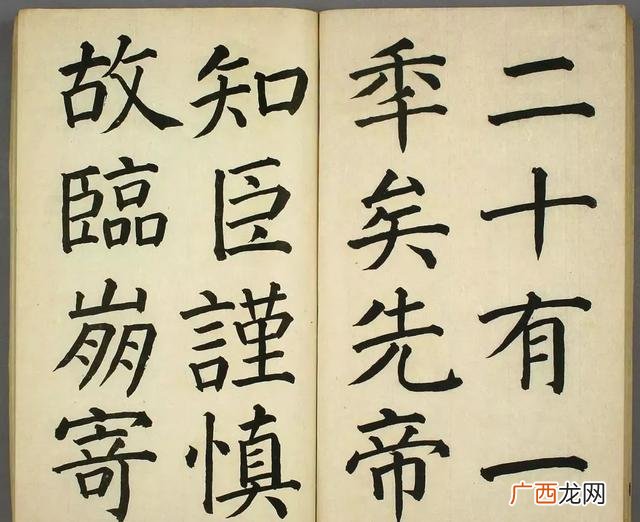 二十有一
秊矣先帝
知臣謹慎
故臨崩寄
广西龙网